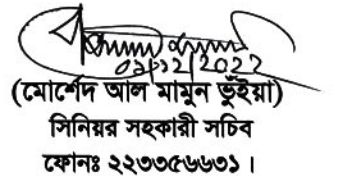 ০১/১২/২০২২
(মোর্শেদ আল মামুন ভূঁইয়া)
সিনিয়র সহকারী সচিব
ফোনঃ ২২৩৩৫৬৬৩১ ।